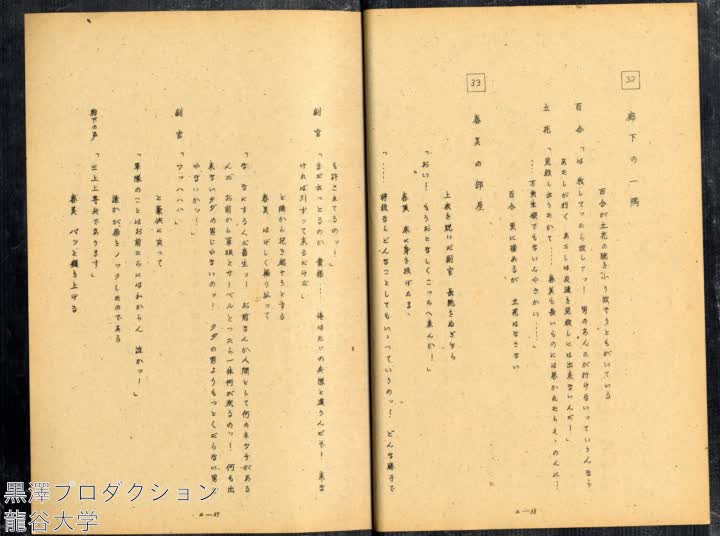 32
廊下の一隅
百合が立花の腕をふり放そうともがいている
百合「は 放してったら放してッ! 男のあんたが行けないっていうんなら
あたしが行く あたしは友達を見殺しには出来ないんだ!」
立花「見殺し云うたかて…… 春美も長いものには巻かれたらええのんに…
……万更生娘でもないんやさかに……」
百合 更に揉めるが 立花はなさない
33
春美の部屋
上衣を脱いだ副官 長靴をぬぎ乍ら
「おい! もうおとなしくこっちへ来んか!」
春美 床に身を投げたまゝ
「……将校ならどんなことしてもいゝっていうのッ! どんな勝手で
も許されてるのッ!」
副官「まだ云っとるのか 貴様… 俺はたいの兵隊と違うんだぞ! 来な
ければ引ずって来るだけだ」
と後から抱き起そうとする
春美 はげしく振り払って
「な なにするんだ畜生ッ! お前なんか人間として何のネウチがある
んだ お前から軍服とサーベルとったら一体何が残るのッ! 何も出
来ないタダの男じゃないのッ! タダの男よりもっとくだらない男じ
やないかッ!」
副官「ワッハハハ」
と豪快に笑って
「軍隊のことはお前たちにはわからん 誰かッ!」
誰かが扉をノックしたのである
廊下の声「三上上等兵であります」
春美 パッと顔を上げる
a—38
a—37
黒澤プロダクション
龍谷大学